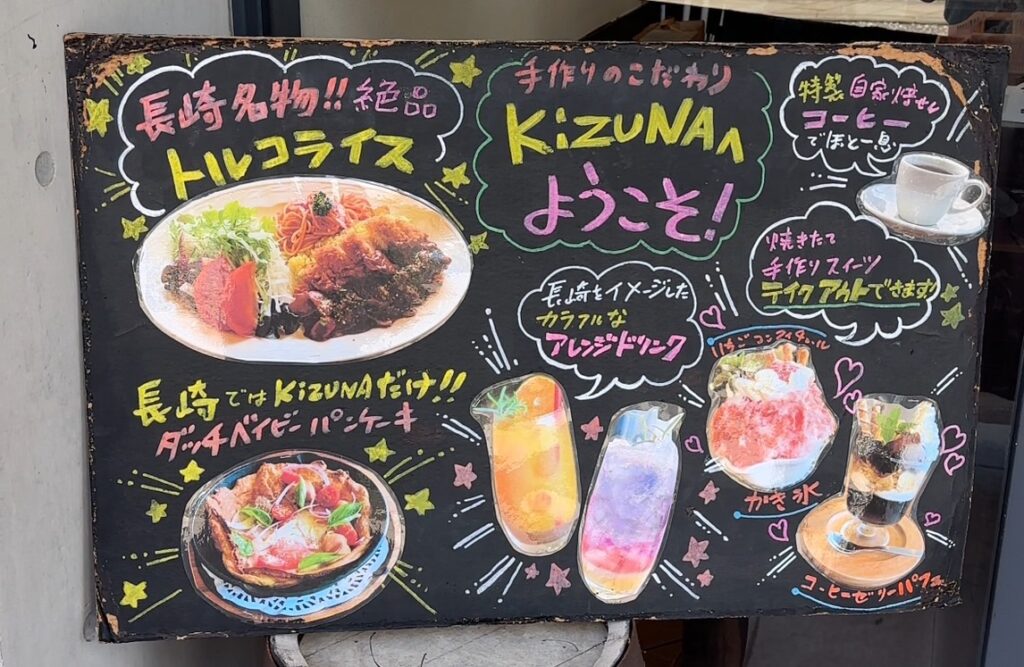 長崎名物!! 絶品
トルコライス
手作りのこだわり
KiZUNAへ
ようこそ!
特製 自家焙煎
コーヒー
でほっと一息
焼きたて
手作りスイーツ
テイクアウトできます
長崎をイメージした
カラフルな
アレンジドリンク
長崎ではKiZUNAだけ!!
ダッチベイビーパンケーキ
いちごコンフィチュール
かき氷
コーヒーゼリーパフェ